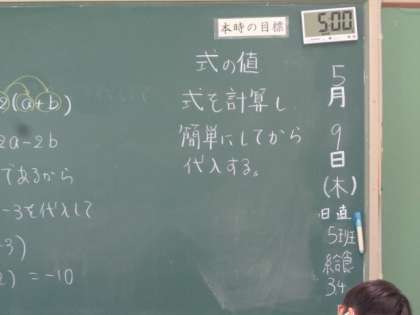 本時の目標
5:00
式の値
式を計算し
簡単にしてから
代入する。
(a+b)
2a-2b
であるから
-3を代入して
-3)
) =-10
5月9日(木)
日直
5班
給食
34